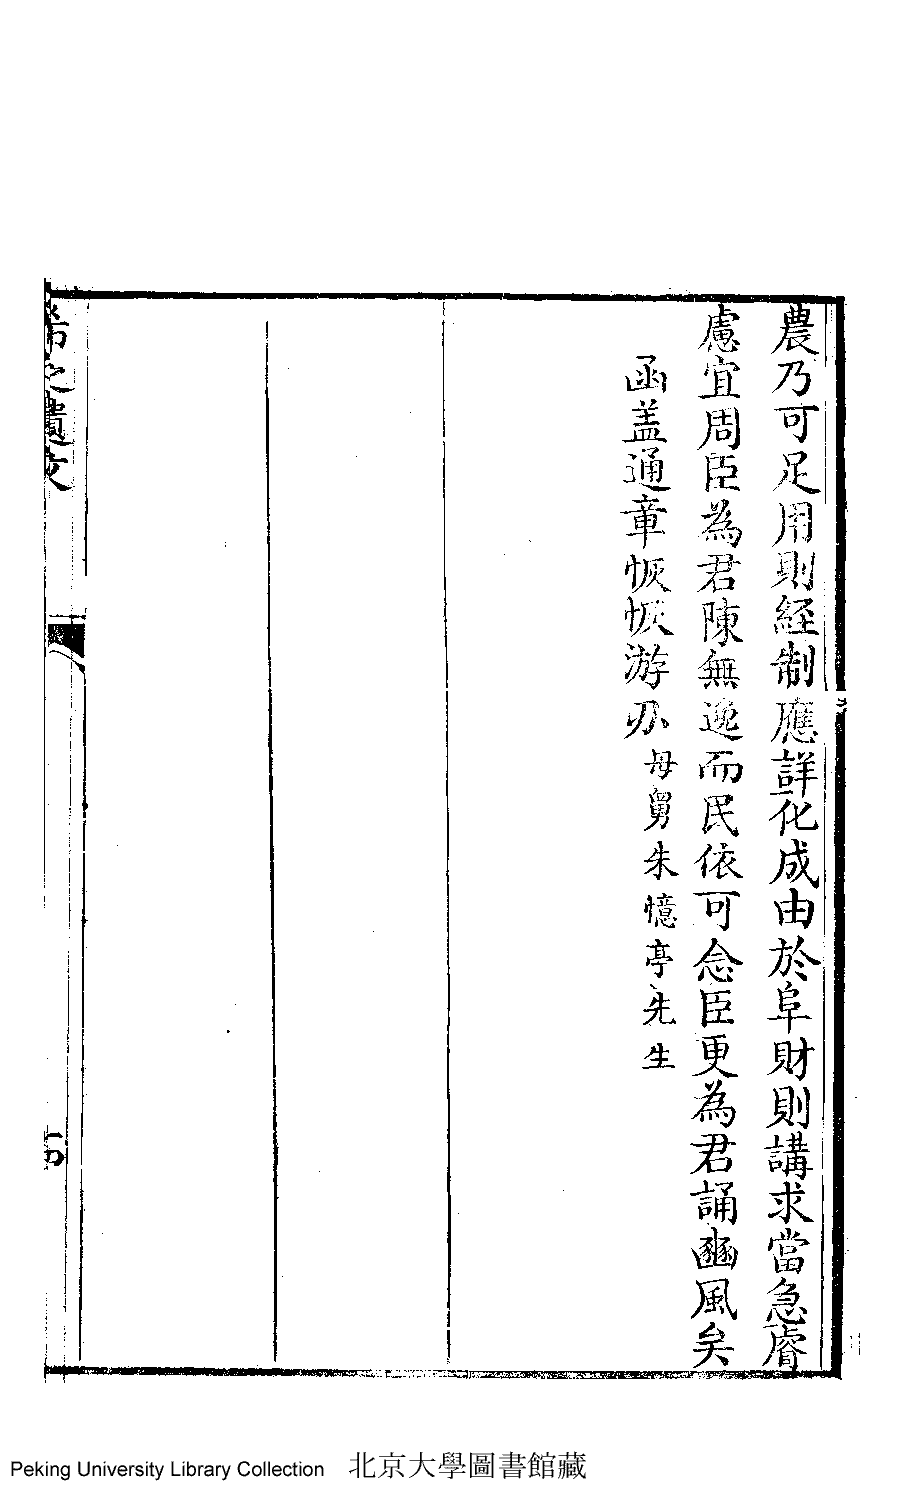 農乃可足用則経制應詳化成由於阜財則講求當急睿
慮宜周臣為君陳無逸而民依可念臣更為君誦豳風矣
函盖通章恢恢游刃母舅朱憶亭先生
希之遺文
Peking University Library Collection 北京大學圖書館藏